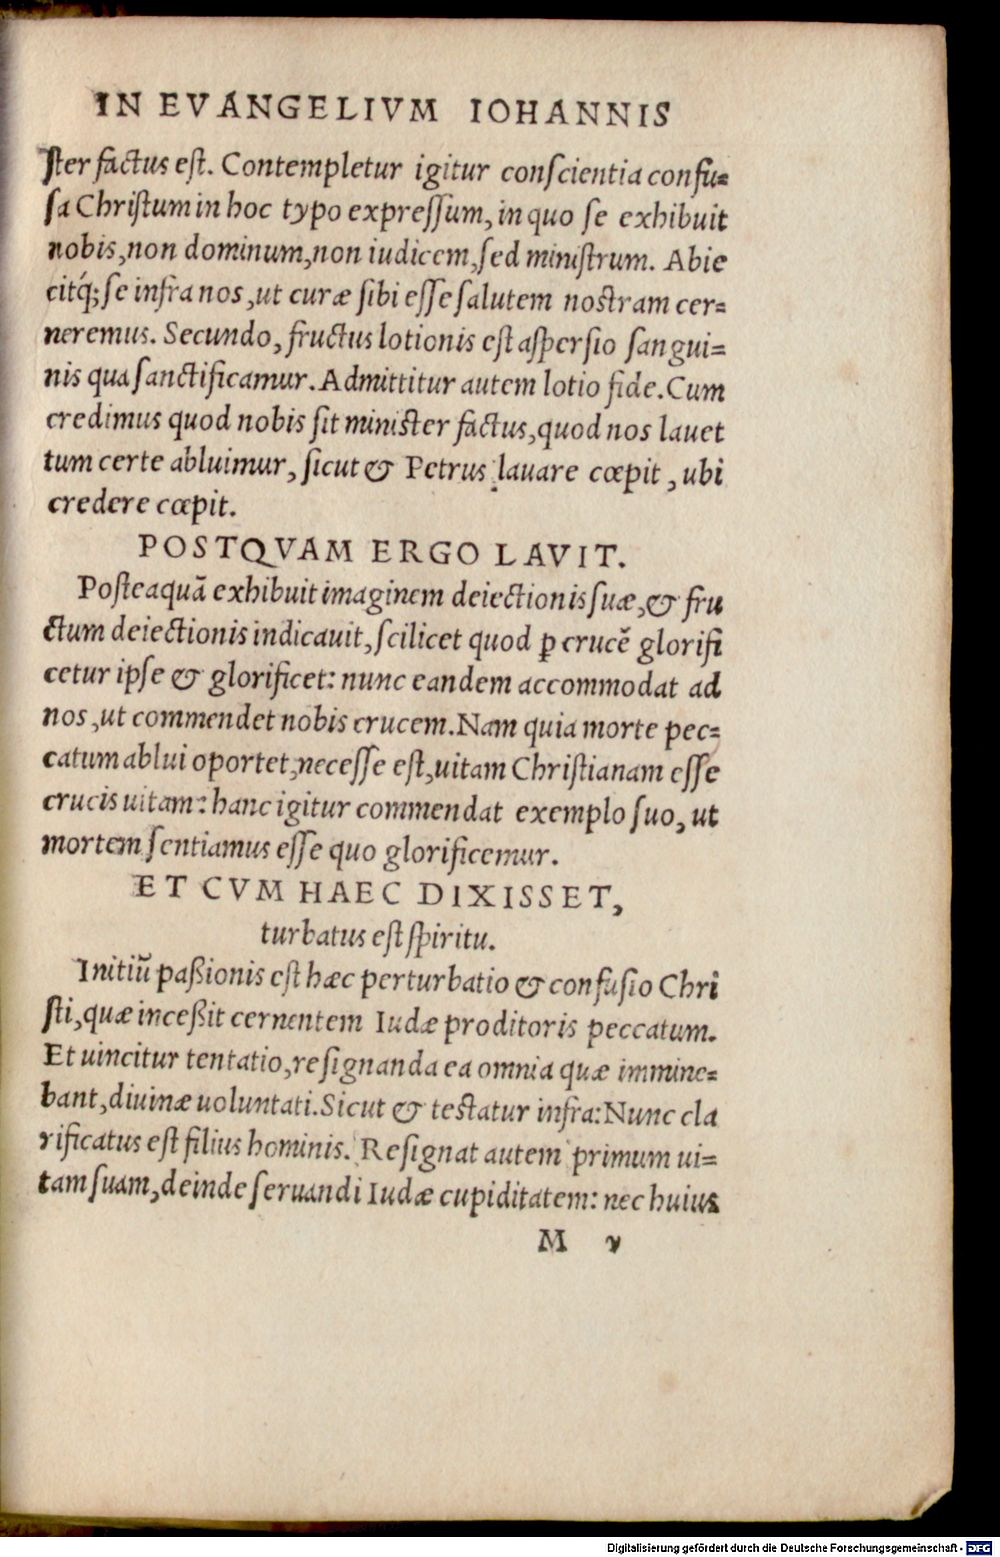 IN EVANGELIVM IOHANNIS
ſter factus eſt. Contempletur igitur conſcientia confu=
ſa Chriſtum in hoc typo expreſſum, in quo ſe exhibuit
nobis, non dominum, non iudicem, ſed miniſtrum. Abie
citq́; ſe infra nos, ut curæ ſibi eſſe ſalutem noſtram cer=
neremus. Secundo, fructus lotionis eſt aſperſio ſangui=
nis qua ſanctificamur. Admittitur autem lotio fide. Cum
credimus quod nobis ſit miniſter factus, quod nos lauet
tum certe abluimur, ſicut & Petrus lauare cœpit, ubi
credere cœpit.
POSTQVAM ERGO LAVIT.
Poſteaquā exhibuit imaginem deiectionis ſuæ, & fru
ctum deiectionis indicauit, ſcilicet quod ꝑ crucē glorifi
cetur ipſe & glorificet: nunc eandem accommodat ad
nos, ut commendet nobis crucem. Nam quia morte pec=
catum ablui oportet, neceſſe eſt, uitam Chriſtianam eſſe
crucis uitam: hanc igitur commendat exemplo ſuo, ut
mortem ſentiamus eſſe quo glorificemur.
ET CVM HAEC DIXISSET,
turbatus eſt ſpiritu.
Initiū paßionis eſt hæc perturbatio & confuſio Chri
ſti, quæ inceßit cernentem Iudæ proditoris peccatum.
Et uincitur tentatio, reſignanda ea omnia quæ immine=
bant, diuinæ uoluntati. Sicut & teſtatur infra: Nunc cla
rificatus eſt filius hominis. Reſignat autem primum ui=
tam ſuam, deinde ſeruandi Iudæ cupiditatem: nec huius
M v
Digitalisierung gefördert durch die Deutsche Forschungsgemeinschaft - DFG